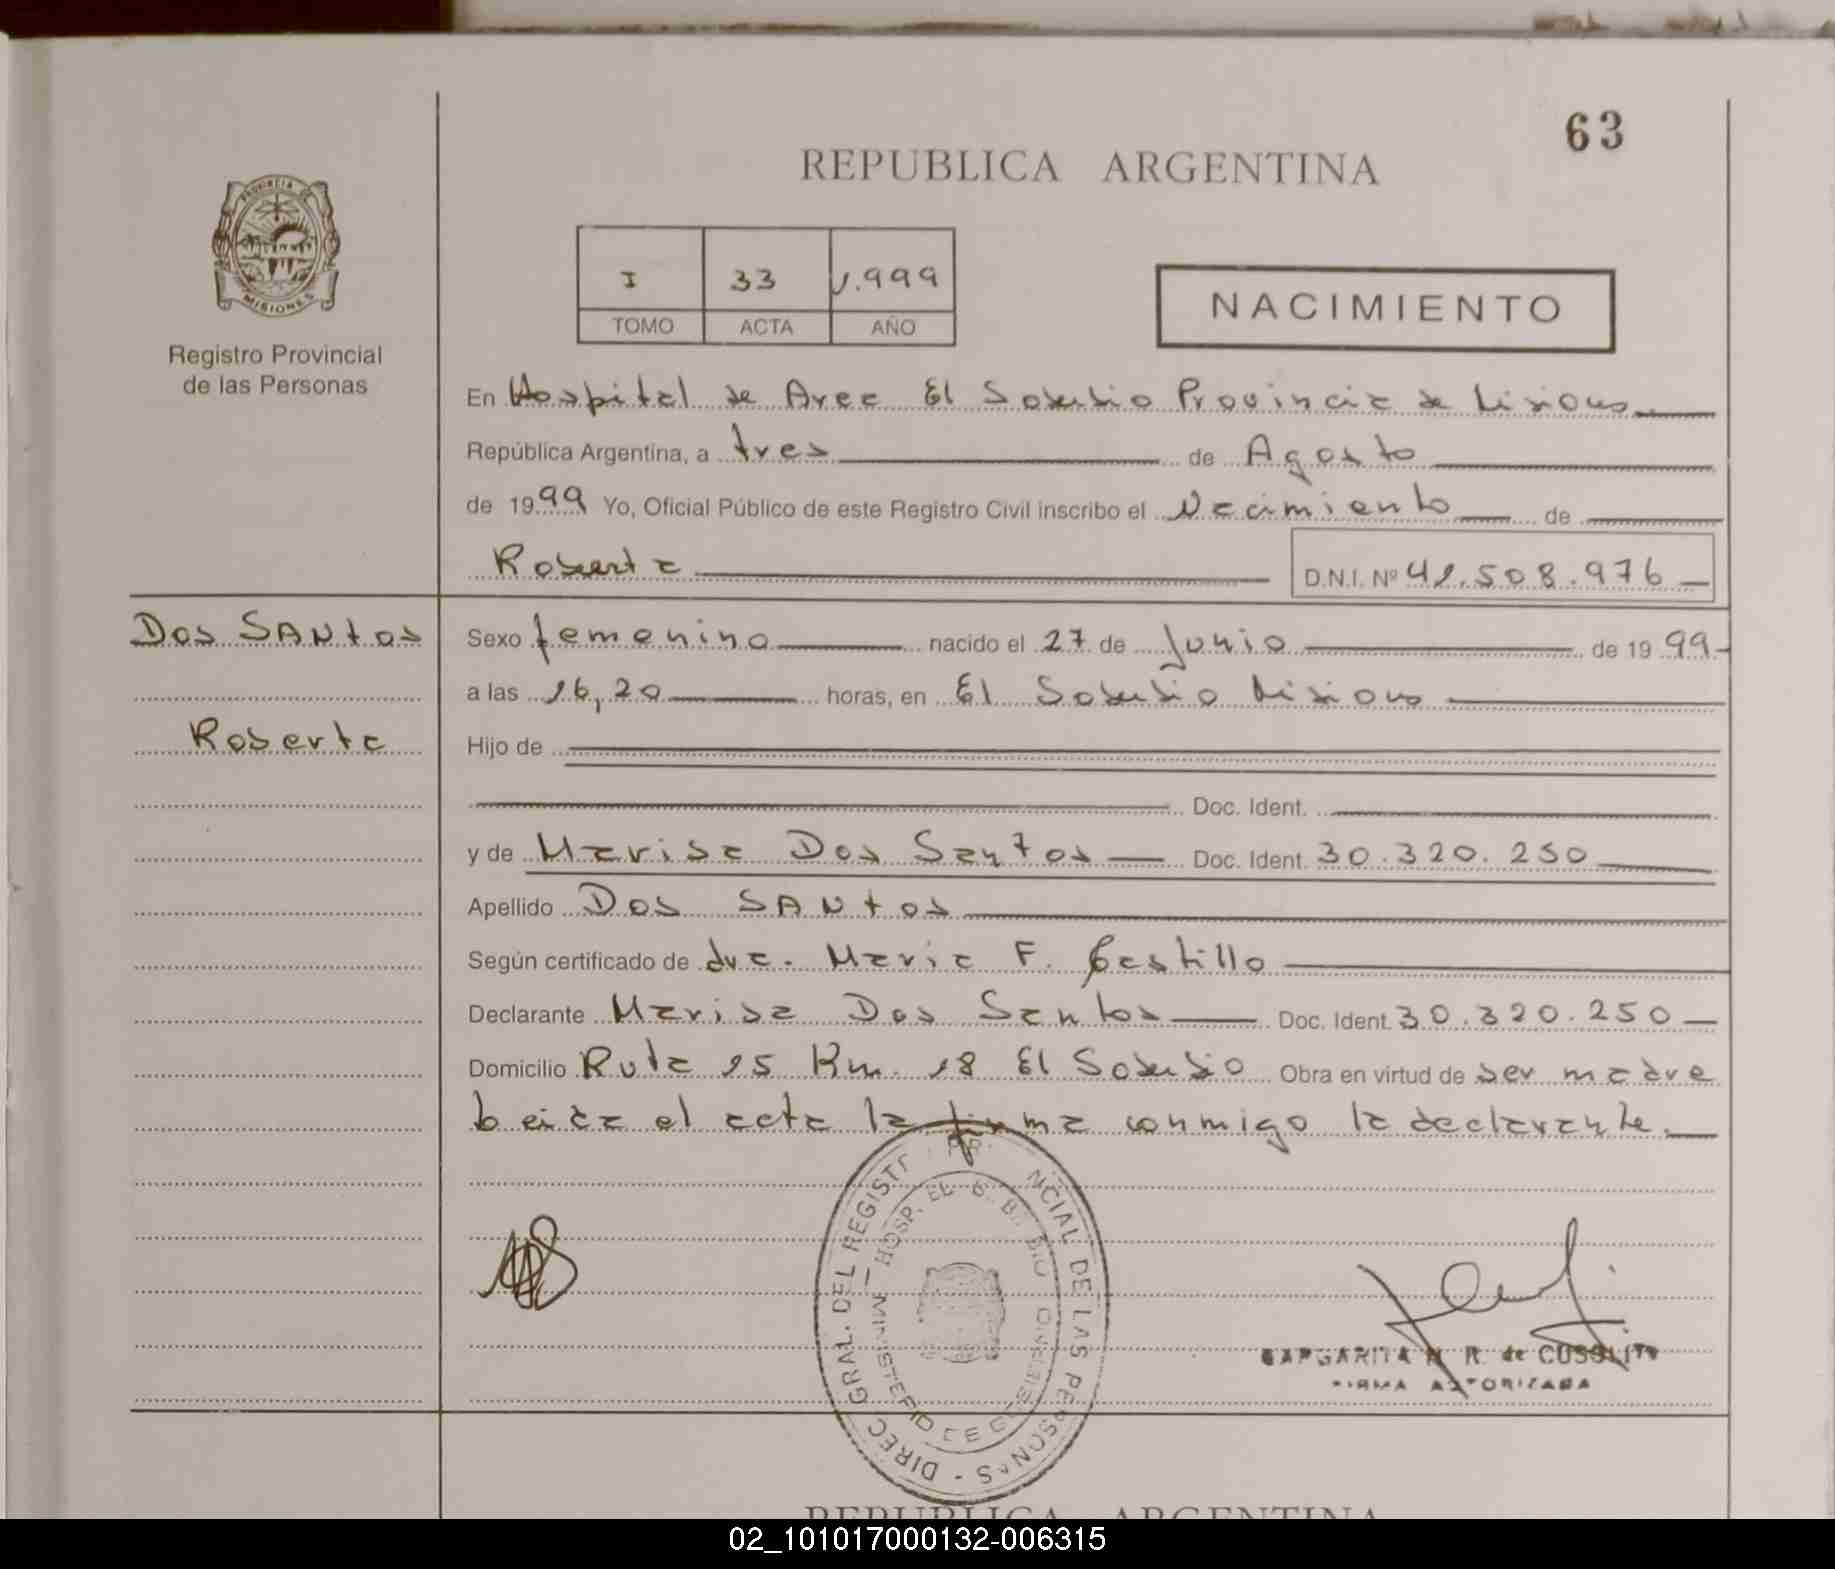 63
REPUBLICA ARGENTINA
PROVINCIA DE
MISIONES
Registro Provincial
de las Personas
I 33 1.999
TOMO ACTA AÑO
NACIMIENTO
En Hospital de Area El Soberbio Provincia de Misiones
República Argentina, a tres de Agosto
de 1999 Yo, Oficial Público de este Registro Civil inscribo el Nacimiento de
Roberta D.N.I. Nº 41.508.976
Dos SANtos
Roberta
Sexo femenino nacido el 27 de Junio de 1999
a las 16,20 horas, en El Soberbio Misiones
Hijo de
Doc. Ident.
y de Marisa Dos Santos Doc. Ident. 30.320.250
Apellido Dos SANtos
Según certificado de dra. Maria F. Castillo
Declarante Marisa Dos Santos Doc. Ident. 30.320.250
Domicilio Ruta 15 Km. 18 El Soberbio Obra en virtud de ser madre
Leida el acta la firma conmigo la declarante.
DIREC GRAL. DEL REGISTR NCIAL DE LAS PERSONAS
HOSP. EL
MINISTERIO DE GOBIERNO
MARGARITA R. de
FIRMA AUTORIZADA
REPUBLICA ARGENTINA
02_101017000132-006315